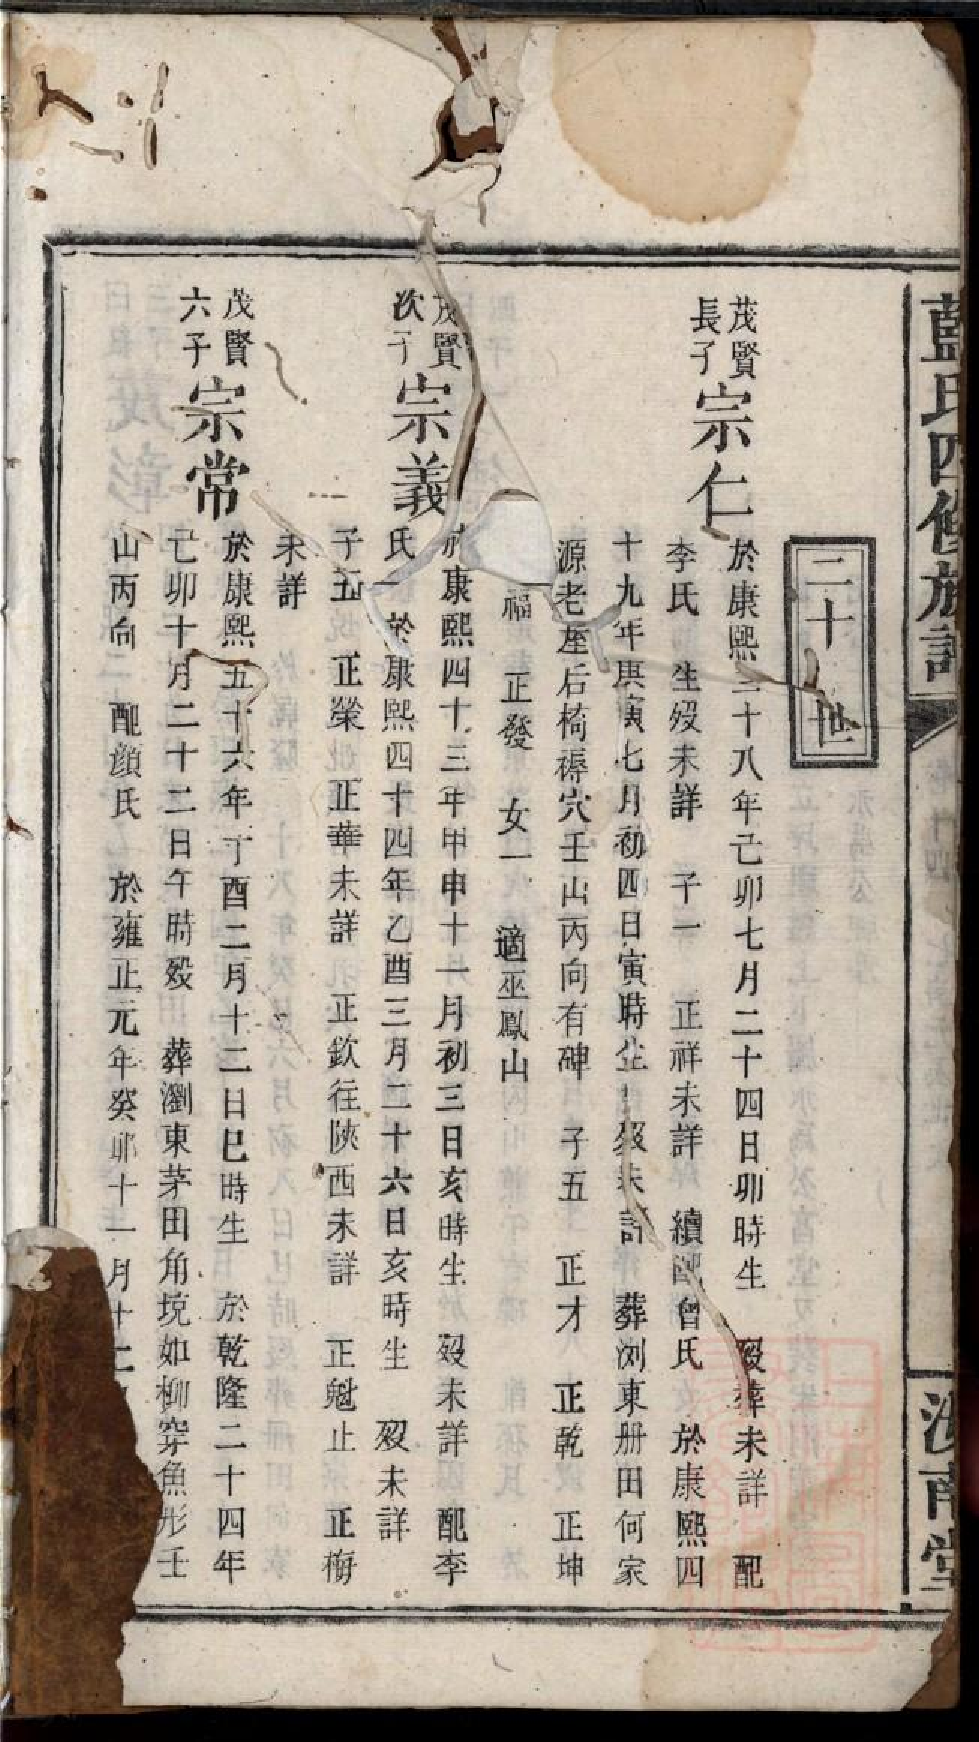 藍氏四修族譜
汝南堂
二十世
茂賢長子宗仁 於康熙三十八年己卯七月二十四日卯時生 歿葬未詳 配
李氏 生歿未詳 子一 正祥未詳 續配曾氏 於康熙四
十九年庚寅七月初四日寅時生 歿未詳 葬浏東册田何家
源老屋后椅褥穴壬山丙向有碑 子五 正才 正乾 正坤
福 正發 女一 適巫鳳山
茂賢次子宗義 於康熙四十三年甲申十一月初三日亥時生 歿未詳 配李
氏 於康熙四十四年乙酉三月二十六日亥時生 歿未詳
子五 正榮 正華未詳 正欽往陝西未詳 正魁止 正
未詳
茂賢六子宗常 於康熙五十六年丁酉二月十二日巳時生 於乾隆二十四年
己卯十月二十二日午時歿 葬瀏東茅田角境如柳穿魚形壬
山丙向 配顔氏 於雍正元年癸卯十一月十二